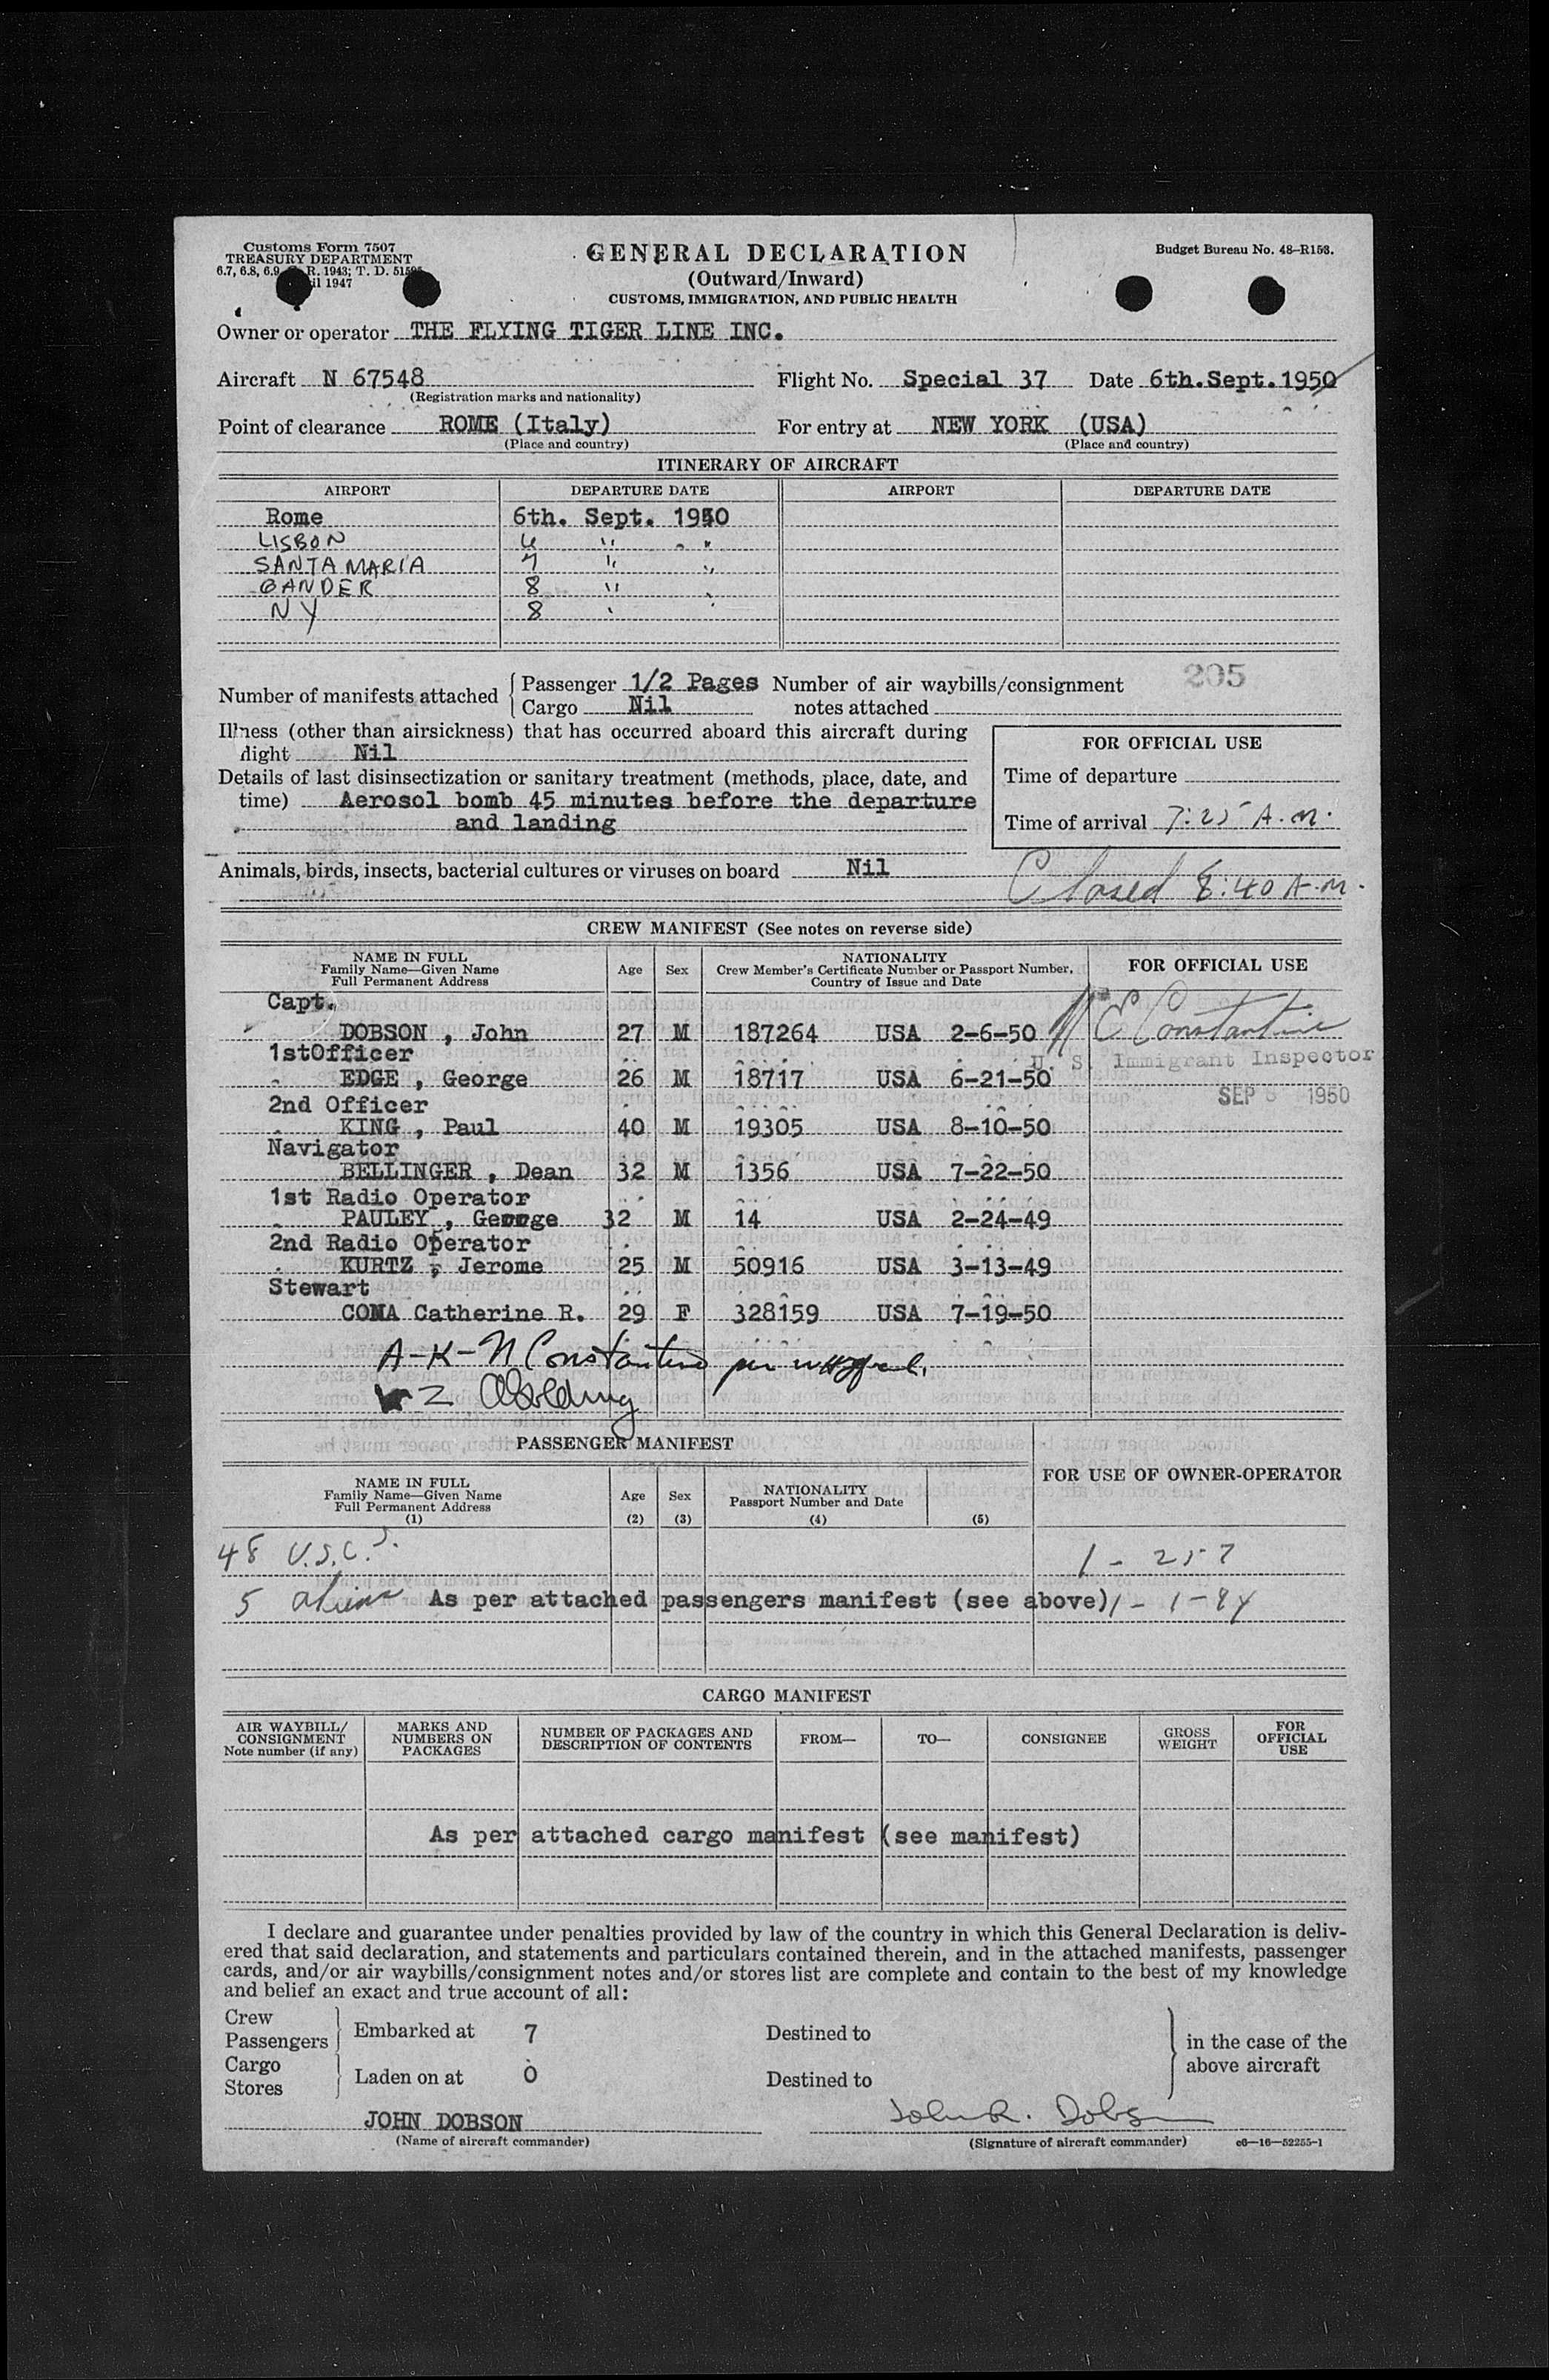 Customs Form 7507
TREASURY DEPARTMENT
6.7, 6.8, 6.9 R. 1943; T. D. 51595
1947
GENERAL DECLARATION
(Outward/Inward)
CUSTOMS, IMMIGRATION, AND PUBLIC HEALTH
Budget Bureau No. 48–R153.
Owner or operator THE FLYING TIGER LINE INC.
Aircraft N 67548 Flight No. Special 37 Date 6th.Sept.1950
(Registration marks and nationality)
Point of clearance ROME (Italy) For entry at NEW YORK (USA)
(Place and country) (Place and country)
ITINERARY OF AIRCRAFT
AIRPORT DEPARTURE DATE AIRPORT DEPARTURE DATE
Rome 6th. Sept. 1950
LISBON 6 " "
SANTA MARIA 7 " "
GANDER 8 "
NY 8
205
Number of manifests attached Passenger 1/2 Pages Number of air waybills/consignment
Cargo Nil notes attached
Illness (other than airsickness) that has occurred aboard this aircraft during
flight Nil
Details of last disinsectization or sanitary treatment (methods, place, date, and
time) Aerosol bomb 45 minutes before the departure
and landing
FOR OFFICIAL USE
Time of departure
Time of arrival 7:25 A.M.
Animals, birds, insects, bacterial cultures or viruses on board Nil
Closed 8:40 A.M.
CREW MANIFEST (See notes on reverse side)
NAME IN FULL
Family Name—Given Name
Full Permanent Address
Age Sex
NATIONALITY
Crew Member's Certificate Number or Passport Number,
Country of Issue and Date
FOR OFFICIAL USE
Capt.
DOBSON , John 27 M 187264 USA 2-6-50 E Constantine
1stOfficer
U. S. Immigrant Inspector
EDGE , George 26 M 18717 USA 6-21-50
SEP 1950
2nd Officer
KING , Paul 40 M 19305 USA 8-10-50
Navigator
BELLINGER , Dean 32 M 1356 USA 7-22-50
1st Radio Operator
PAULEY , George 32 M 14 USA 2-24-49
2nd Radio Operator
KURTZ , Jerome 25 M 50916 USA 3-13-49
Stewart
COMA Catherine R. 29 F 328159 USA 7-19-50
A-K-N Constantine per
PASSENGER MANIFEST
NAME IN FULL
Family Name—Given Name
Full Permanent Address
(1)
Age
(2)
Sex
(3)
NATIONALITY
Passport Number and Date
(4) (5)
FOR USE OF OWNER-OPERATOR
48 U.S.C.s. 1 - 257
5 aliens As per attached passengers manifest (see above) 1 - 1-94
CARGO MANIFEST
AIR WAYBILL/
CONSIGNMENT
Note number (if any)
MARKS AND
NUMBERS ON
PACKAGES
NUMBER OF PACKAGES AND
DESCRIPTION OF CONTENTS
FROM— TO— CONSIGNEE
GROSS
WEIGHT
FOR
OFFICIAL
USE
As per attached cargo manifest (see manifest)
I declare and guarantee under penalties provided by law of the country in which this General Declaration is deliv-
ered that said declaration, and statements and particulars contained therein, and in the attached manifests, passenger
cards, and/or air waybills/consignment notes and/or stores list are complete and contain to the best of my knowledge
and belief an exact and true account of all:
Crew
Passengers Embarked at 7 Destined to in the case of the
Cargo above aircraft
Stores Laden on at 0 Destined to
JOHN DOBSON John R. Dobson
(Name of aircraft commander) (Signature of aircraft commander) c6—16—52255-1